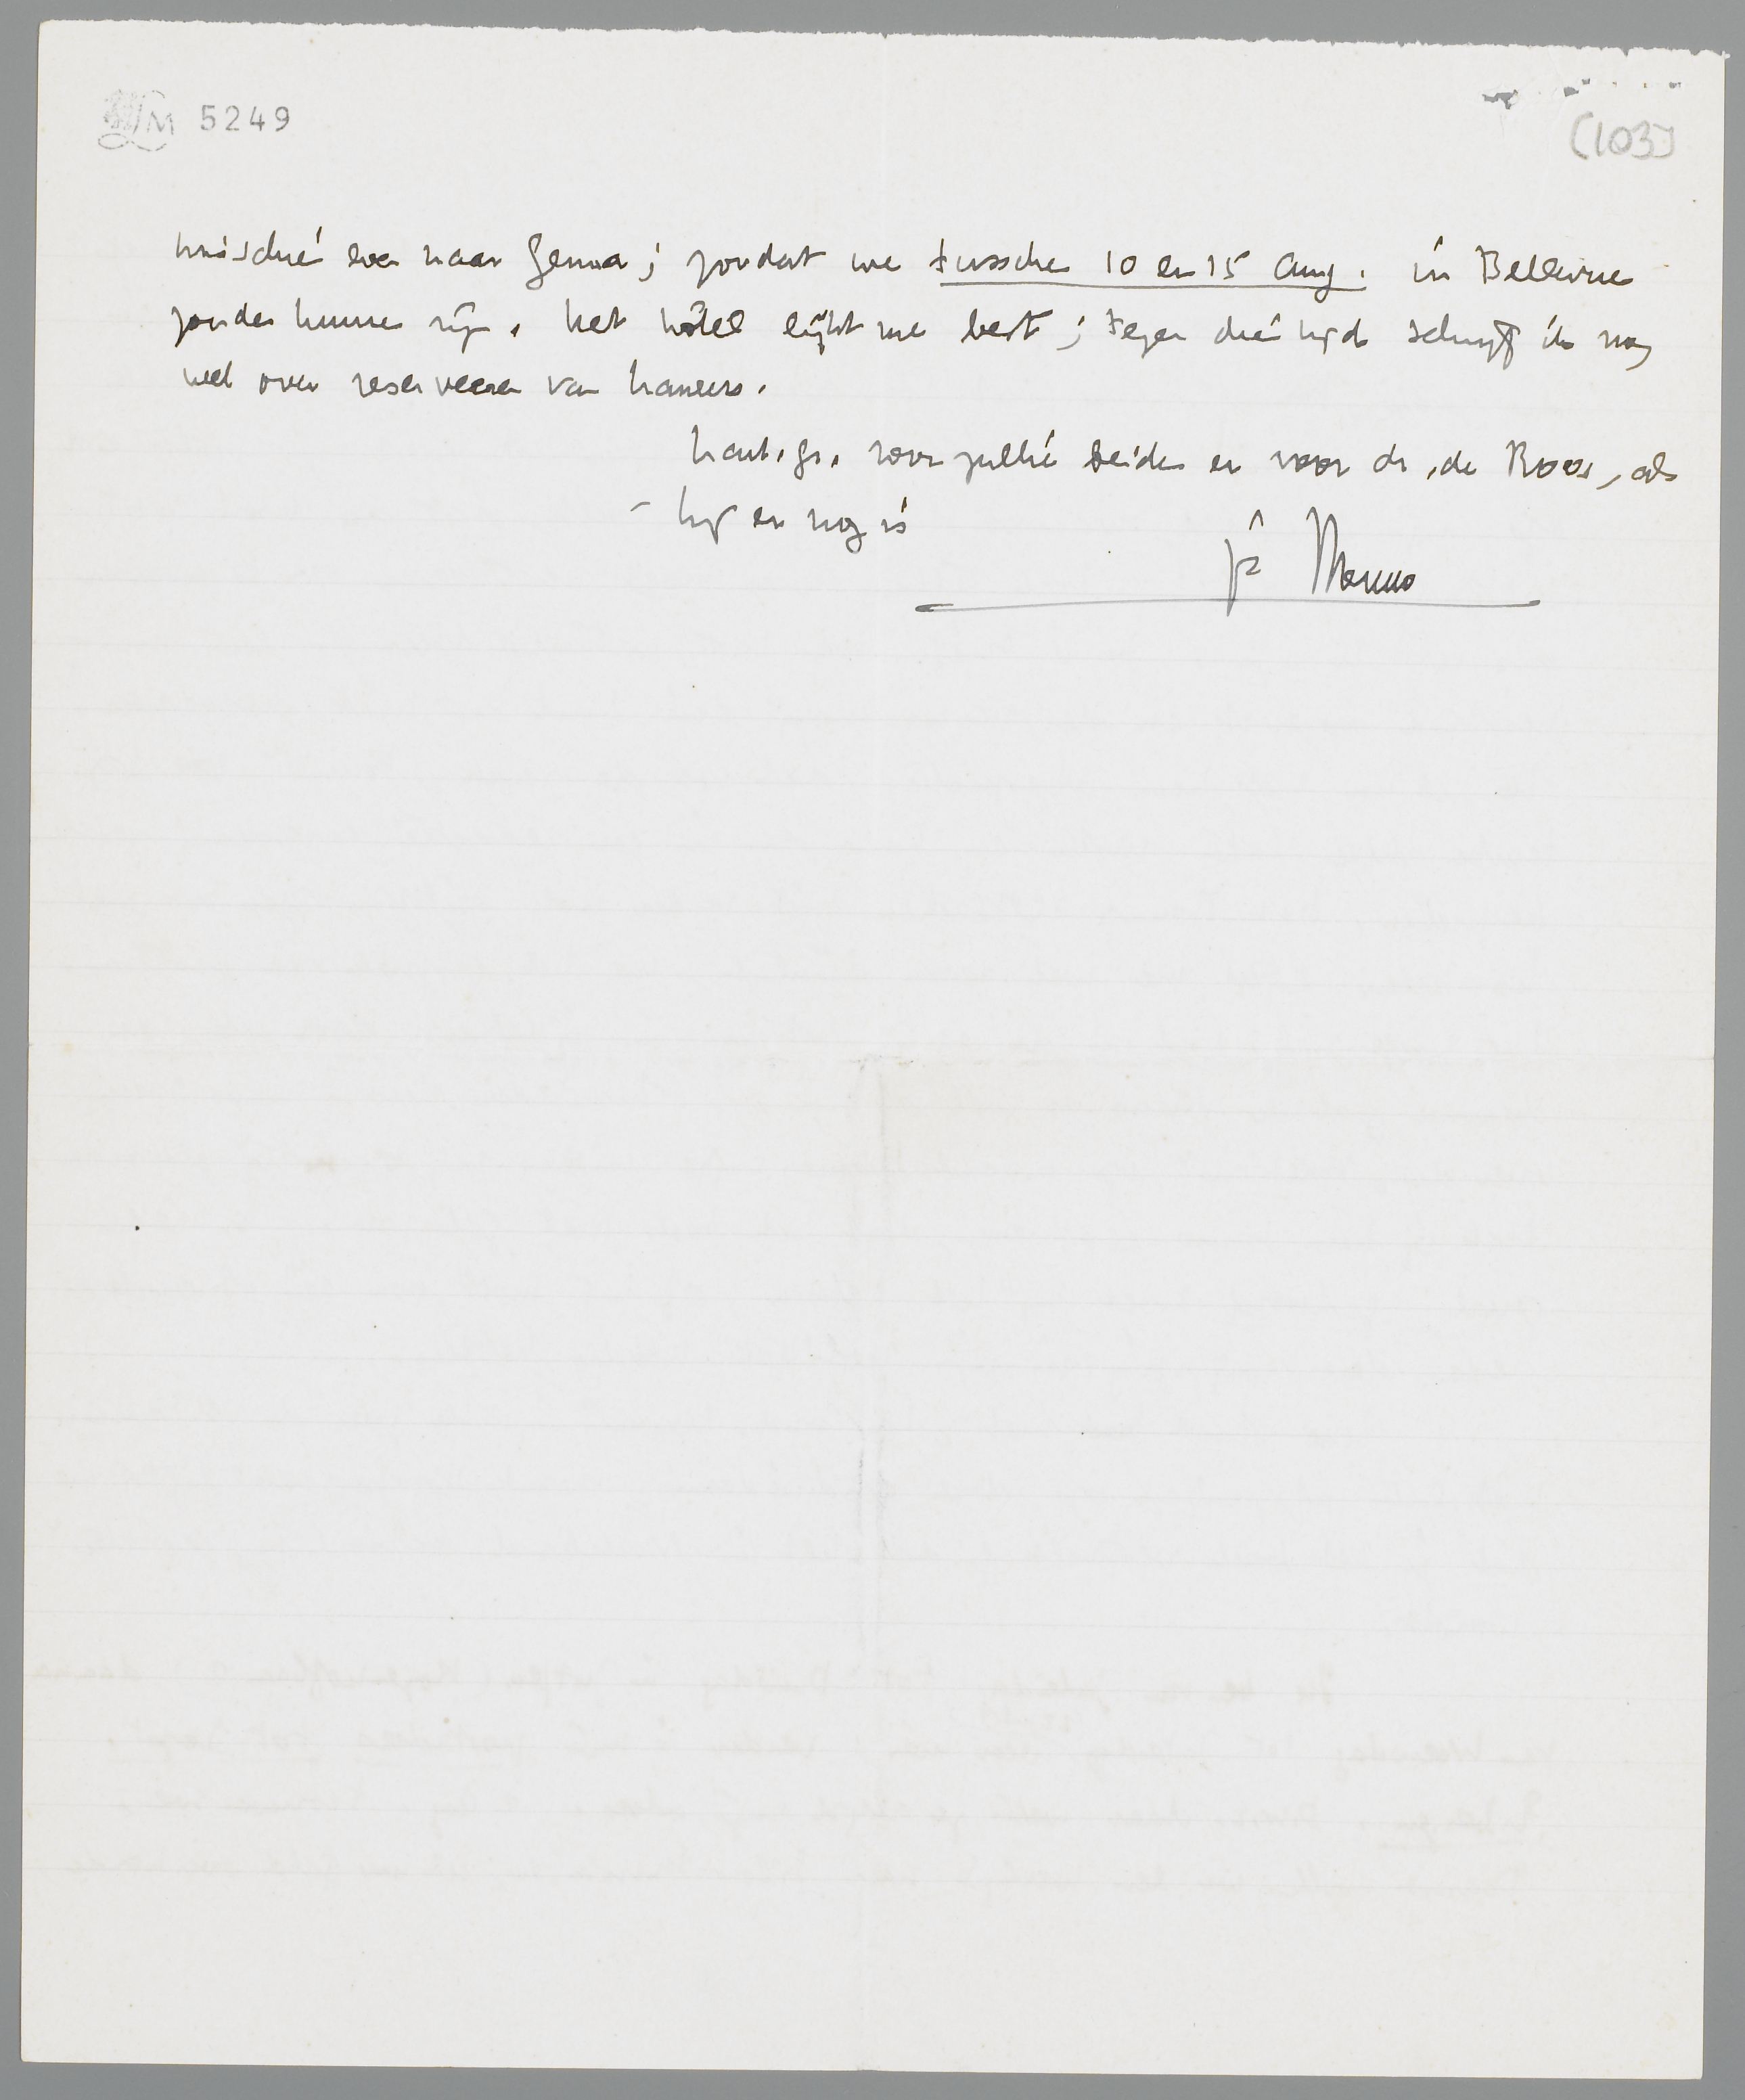 LM 5249
(103)
misschien even naar Genua; zoodat we tusschen 10 en 15 Aug. in Bellevue
zouden kunnen zijn. Het hôtel lijkt me best; tegen dien tijd schrijf ik nog
wel over reserveeren van kamers.
hart. gr. voor jullie beiden en voor dr. de Roos, als
hij er nog is
je Menno